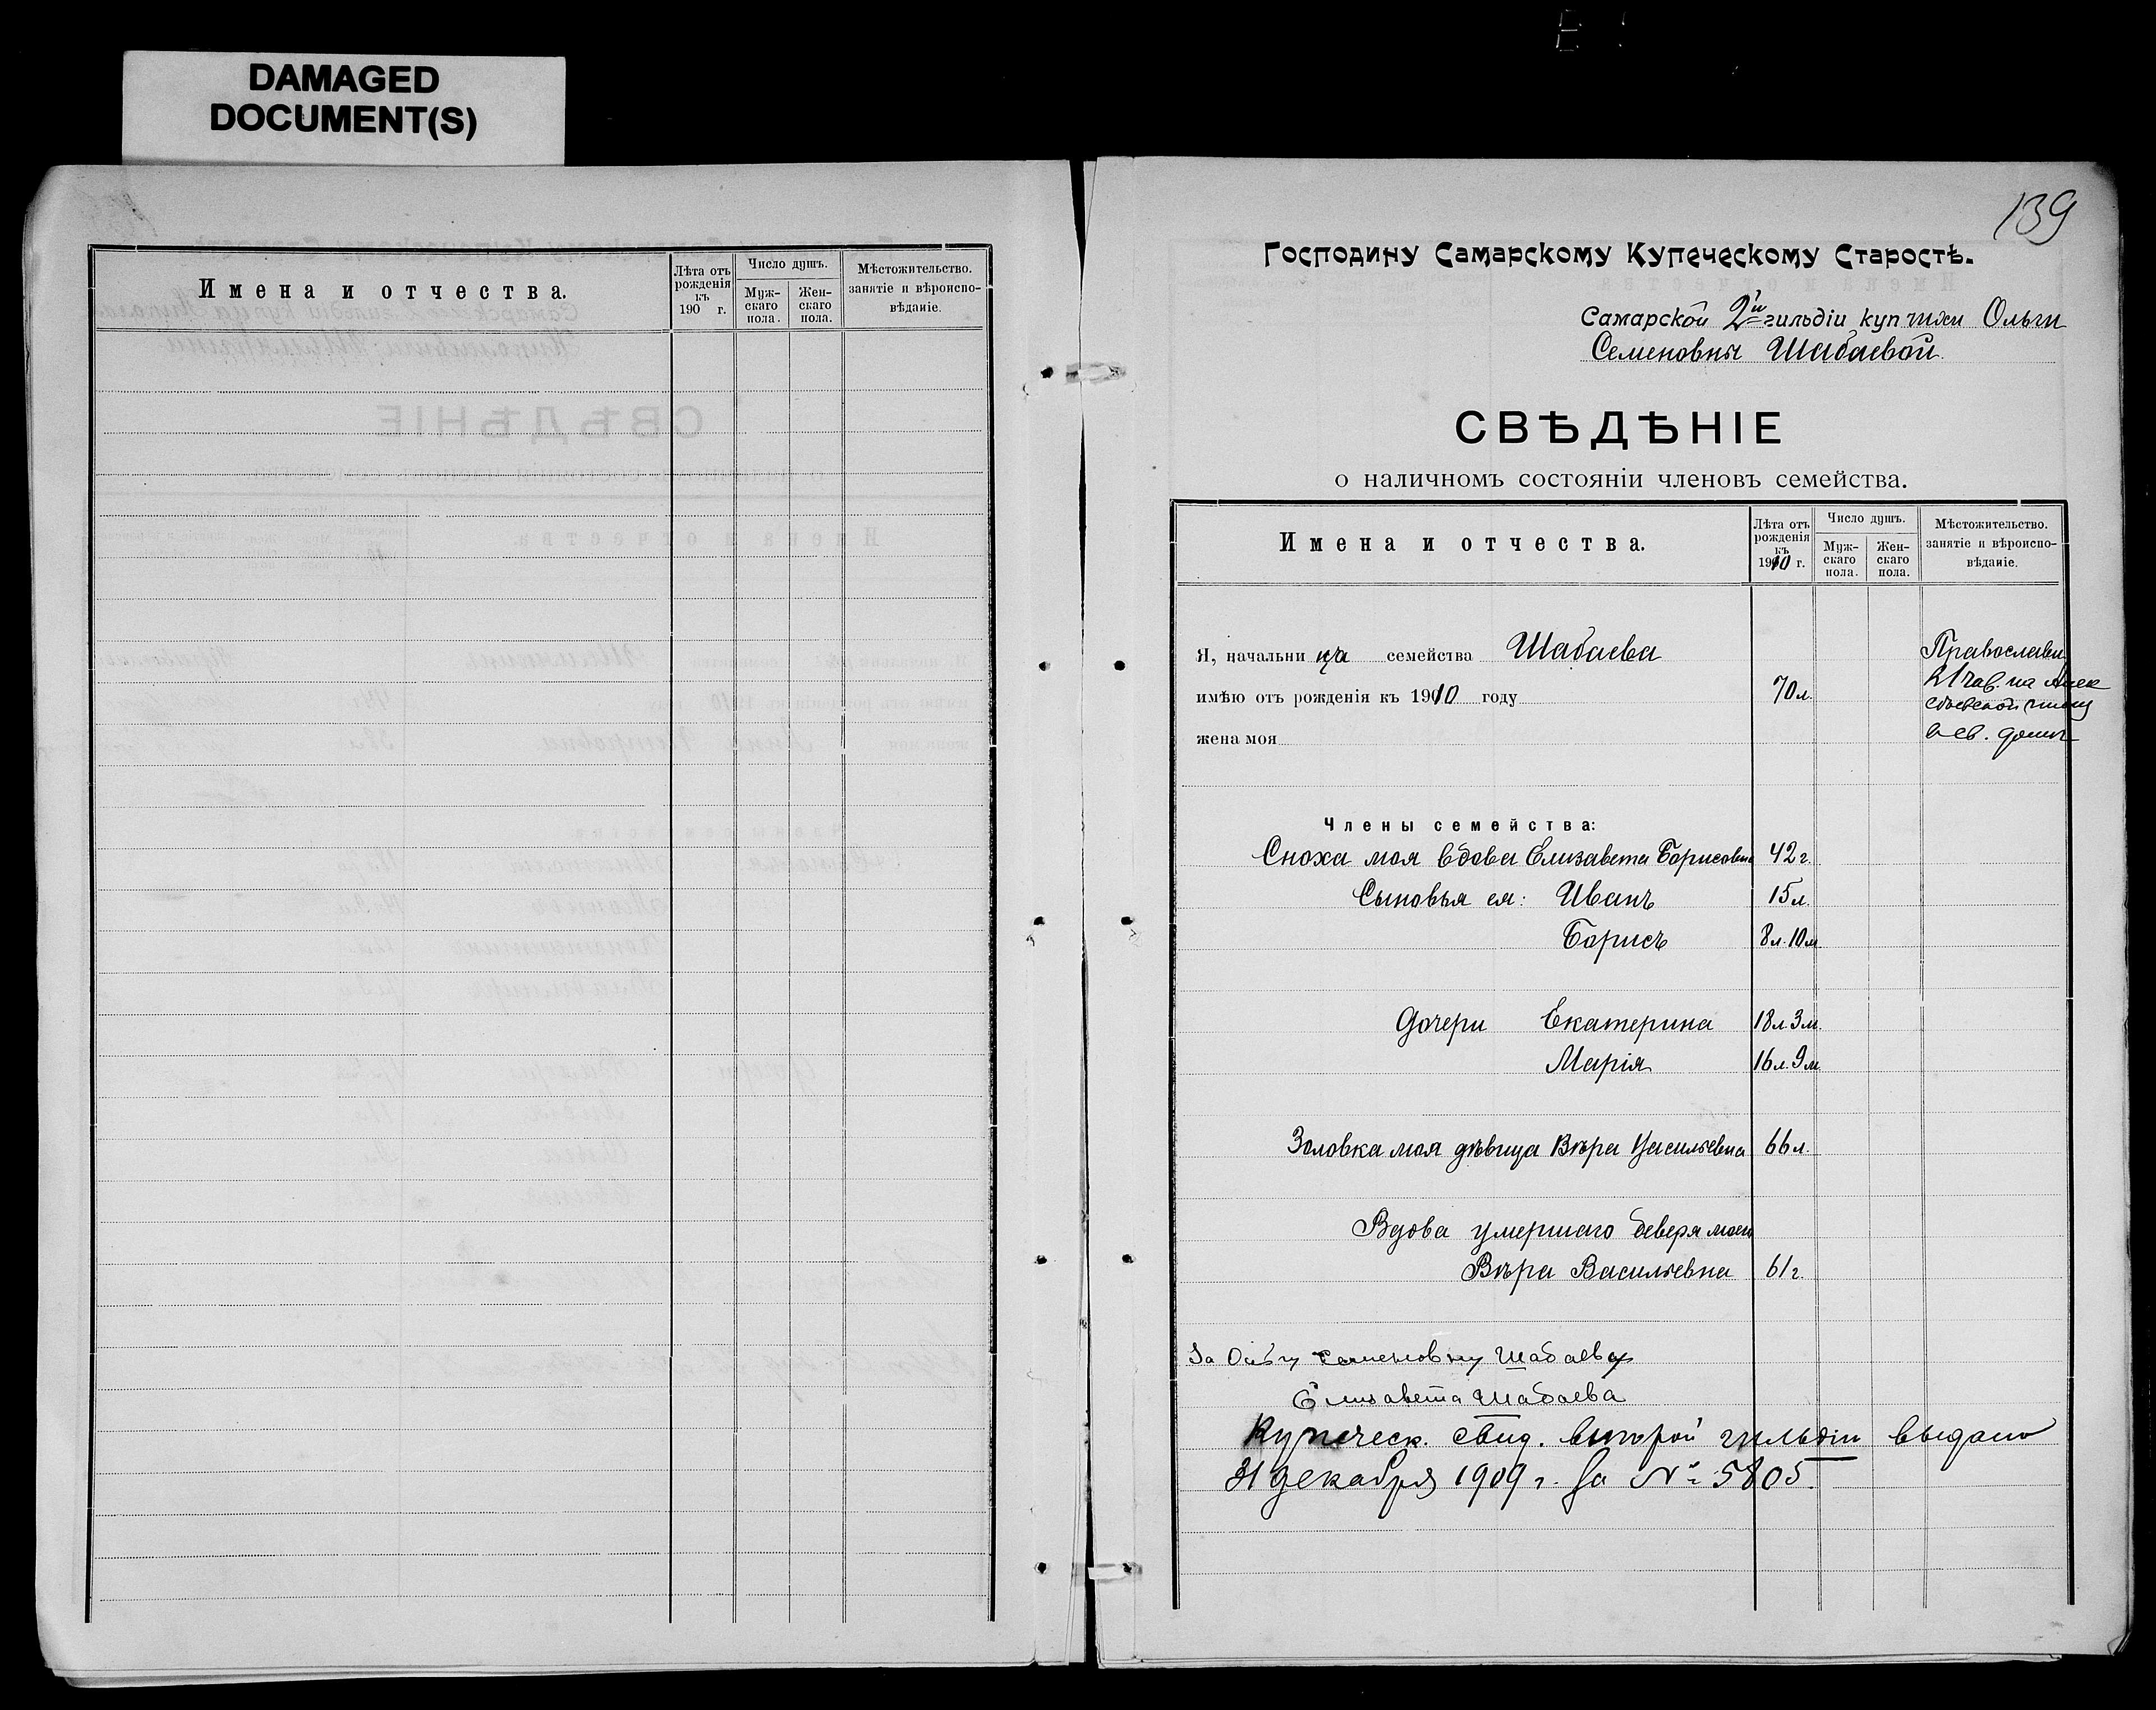 DAMAGED
DOCUMENT(S)
Имена и отчества.
Лѣта отъ рожденія къ 190 г.
Число душъ.
Мужскаго пола.
Женскаго пола.
Мѣстожительство. занятіе и вѣроисповѣданіе.
139
Господину Самарскому Купеческому Старостѣ.
Самарской 2й гильдіи купчихи Ольги
Семеновны Шабаевой.
СВѢДѢНІЕ
о наличномъ состояніи членовъ семейства.
Имена и отчества.
Лѣта отъ рожденія къ 1910 г.
Число душъ.
Мужскаго пола.
Женскаго пола.
Мѣстожительство. занятіе и вѣроисповѣданіе.
Я, начальница семейства Шабаева
Православн
имѣю отъ рожденія къ 1910 году 70 л.
жена моя
в св. домѣ
Члены семейства:
Сноха моя вдова Елизавета Борисовна 42 г.
Сыновья ея: Иванъ 15 л.
Борисъ 8 л. 10 м
Дочери Екатерина 18 л. 3 м.
Марія 16 л. 9 м.
Золовка моя дѣвица Вѣра Васильевна 66 л.
Вдова умершаго деверя моего
Вѣра Васильевна 61 г.
За Ольгу Семеновну Шабаеву
Елизавета Шабаева
Купеческ. свид. второй гильдіи выдано
31 декабря 1909 г. за № 5805.